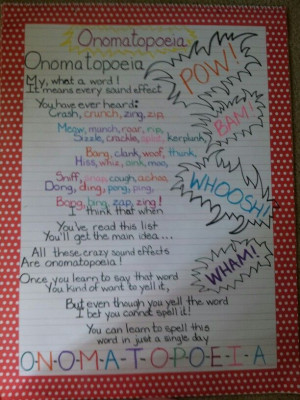 Onomatopoeia
Onomatopoeia
My, what a word!
It means every sound effect
You have ever heard:
Crash, crunch, zing, zip,
Meow, munch, roar, rip,
Sizzle, crackle, splat, kerplunk
Bang, clank, woof, thunk,
Hiss, whiz, oink, moo,
Sniff, snap, cough, achoo,
Dong, ding, pong, ping,
Boing, bing, zap, zing!
I think that when
You've read this list
You'll get the main idea...
All these crazy sound effects
Are onomatopoeia!
Once you learn to say that word
You kind of want to yell it,
But even though you yell the word
I bet you cannot spell it!
You can learn to spell this
word in just a single day
O-N-O-M-A-T-O-P-O-E-I-A
POW!
BAM!
WHOOSH!
WHAM!